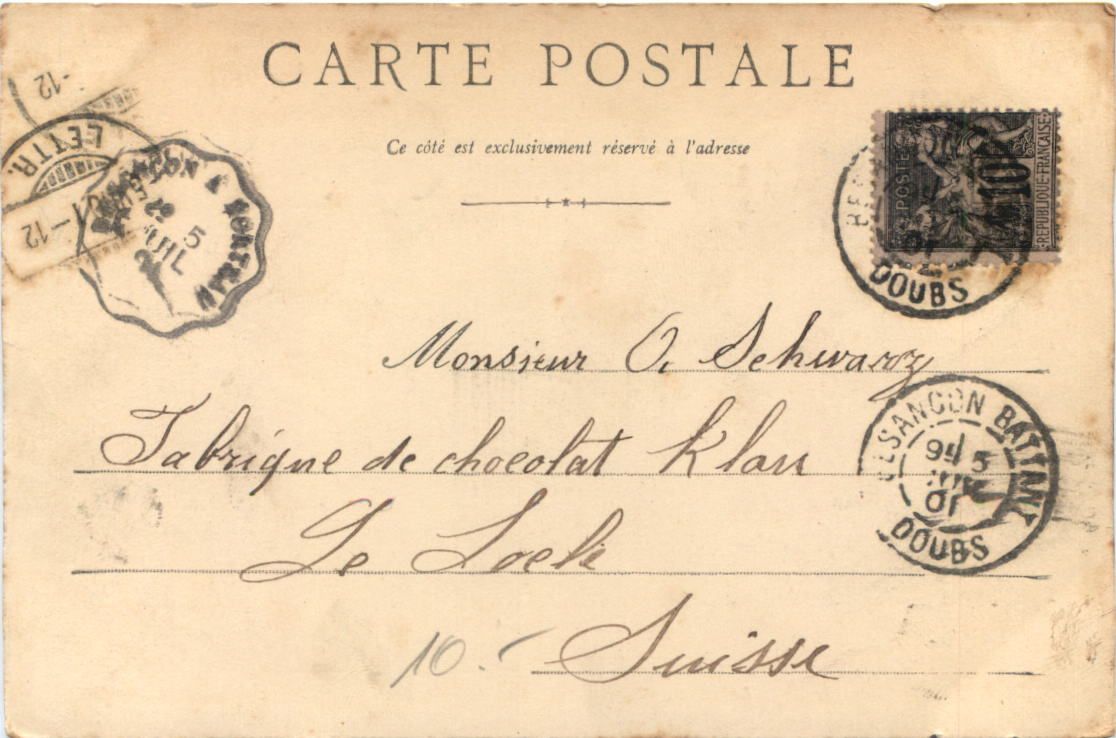 CARTE POSTALE
Ce côté est exclusivement réservé à l'adresse
POSTES
10
REPUBLIQUE FRANÇAISE
DOUBS
-12
LETTR.
1-12
5
JUIL
Monsieur O. Schwarz
Fabrique de chocolat Klaus
Le Locle
Suisse
10.-
BESANCON BATTANT
5
01
DOUBS